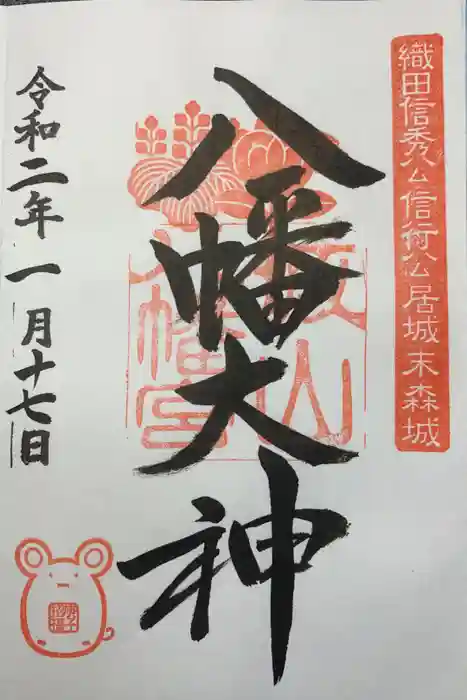 織田信秀公信行公居城末森城
八幡大神
城山八幡宮
令和二年一月十七日